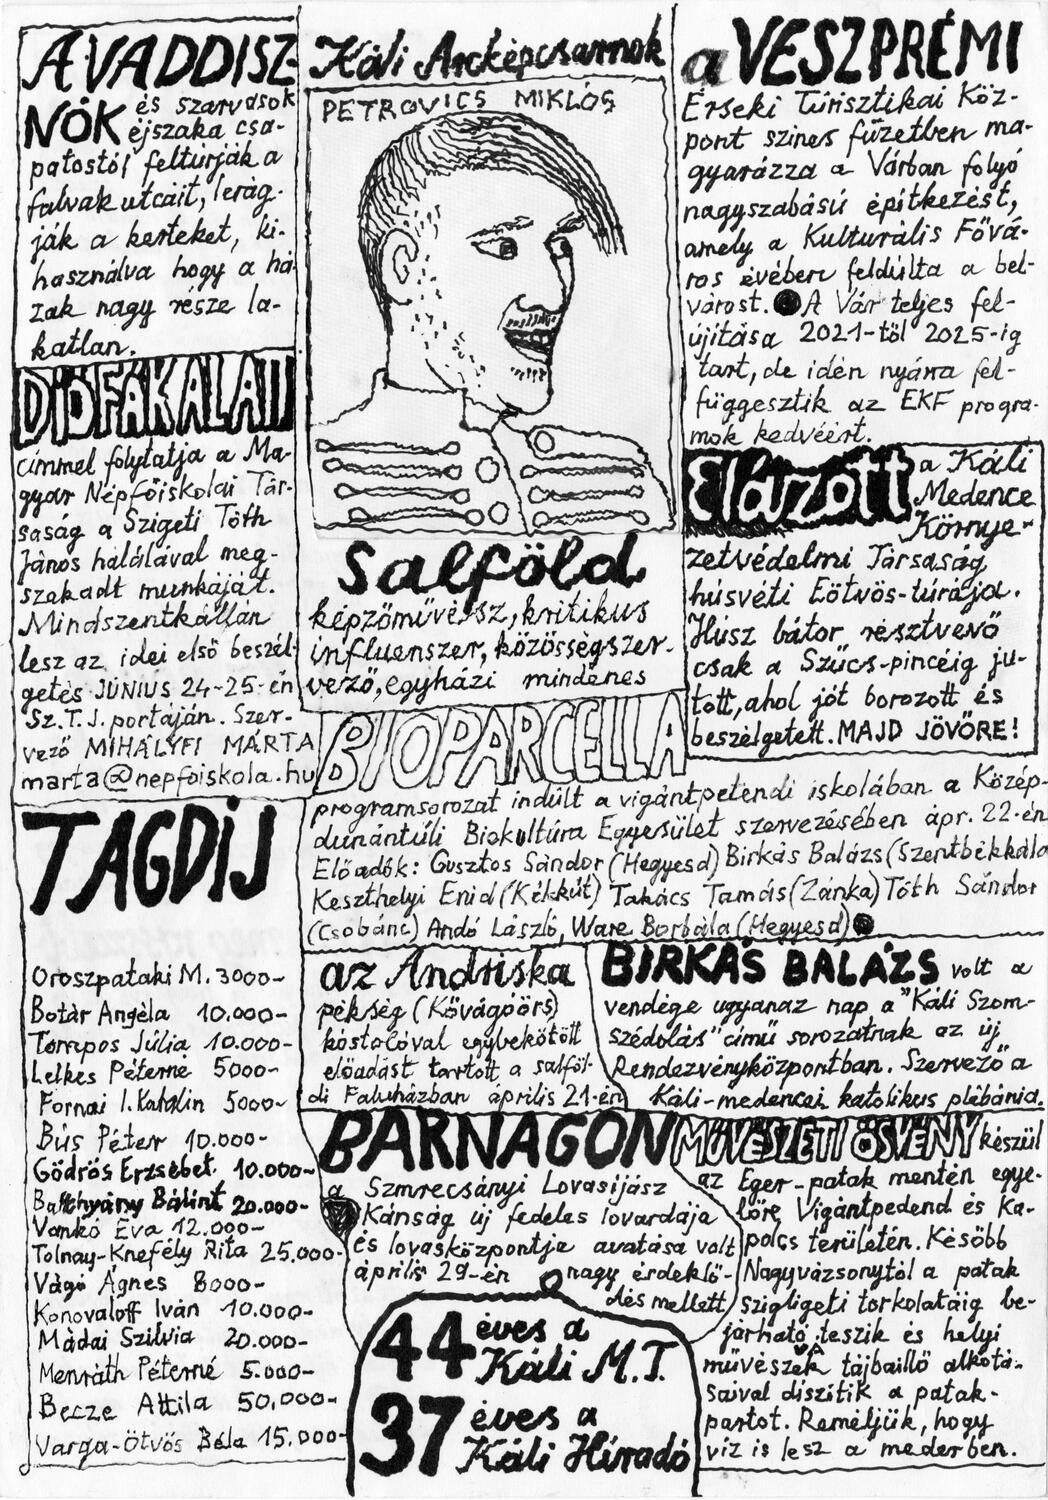 A VADDISZ-
NÓK és szarvasok
éjszaka csa-
patostól feltúrják a
falvak utcáit, lerág-
ják a kerteket, ki-
használva hogy a há-
zak nagy része la-
katlan.
DIÓFÁK ALATT
címmel folytatja a Ma-
gyar Népfőiskolai Tár-
saság a Szigeti Tóth
János halálával meg-
szakadt munkáját.
Mindszentkállán
lesz az idei első beszél-
getés JÚNIUS 24-25-én
Sz.T.J. portáján. Szer-
vező MIHÁLYFI MÁRTA
marta@nepfoiskola.hu
TAGDÍJ
Oroszpataki M. 3000-
Botár Angéla 10.000-
Tompos Júlia 10.000-
Lelkes Péterné 5000-
Fornai I. Katalin 5000-
Bús Péter 10.000-
Gödrös Erzsébet 10.000-
Batthyány Bálint 20.000-
Vankó Éva 12.000-
Tolnay-Knefély Rita 25.000-
Vágó Ágnes 8000-
Konovaloff Iván 10.000-
Mádai Szilvia 20.000-
Menráth Péterné 5.000-
Becze Attila 50.000-
Varga-Ötvös Béla 15.000-
Káli Arcképcsarnok
PETROVICS MIKLÓS
Salföld
képzőművész, kritikus
influenszer, közösségszer-
vező, egyházi mindenes
BIOPARCELLA
programsorozat indult a vigántpetendi iskolában a Közép-
dunántúli Biokultúra Egyesület szervezésében ápr. 22-én
Előadók: Gusztos Sándor (Hegyesd) Birkás Balázs (Szentbékkála
Keszthelyi Enid (Kékkút) Takács Tamás (Zánka) Tóth Sándor
(Csobánc) Andó László, Ware Borbála (Hegyesd)
az Andriska
pékség (Kővágóörs)
kóstolóval egybekötött
előadást tartott a salföl-
di Faluházban április 21-én
BIRKÁS BALÁZS volt a
vendége ugyanaz nap a "Káli Szom-
szédolás" című sorozatnak az új
Rendezvényközpontban. Szervező a
Káli-medencei katolikus plébánia.
BARNAGON
a Szmrecsányi Lovasíjász
Kánság új fedeles lovardája
és lovasközpontja avatása volt
április 29-én nagy érdeklő-
dés mellett
44 éves a
Káli M.T.
37 éves a
Káli Híradó
a VESZPRÉMI
Érseki Túrisztikai Köz-
pont színes füzetben ma-
gyarázza a Várban folyó
nagyszabású építkezést,
amely a Kulturális Fővá-
ros évében feldúlta a bel-
várost. A Vár teljes fel-
újítása 2021-től 2025-ig
tart, de idén nyárra fel-
függesztik az EKF progra-
mok kedvéért.
Elázott a Káli
Medence
Környe-
zetvédelmi Társaság
húsvéti Eötvös-túrája.
Húsz bátor résztvevő
csak a Szűcs-pincéig ju-
tott, ahol jót borozott és
beszélgetett. MAJD JÖVŐRE!
MŰVÉSZETI ÖSVÉNY készül
az Eger-patak mentén egye-
lőre Vigántpedend és Ka-
polcs területén. Később
Nagyvázsonytól a patak
szigligeti torkolatáig be-
járható teszik és helyi
művészek tájbaillő alkotá-
saival díszítik a patak-
partot. Reméljük, hogy
víz is lesz a mederben.